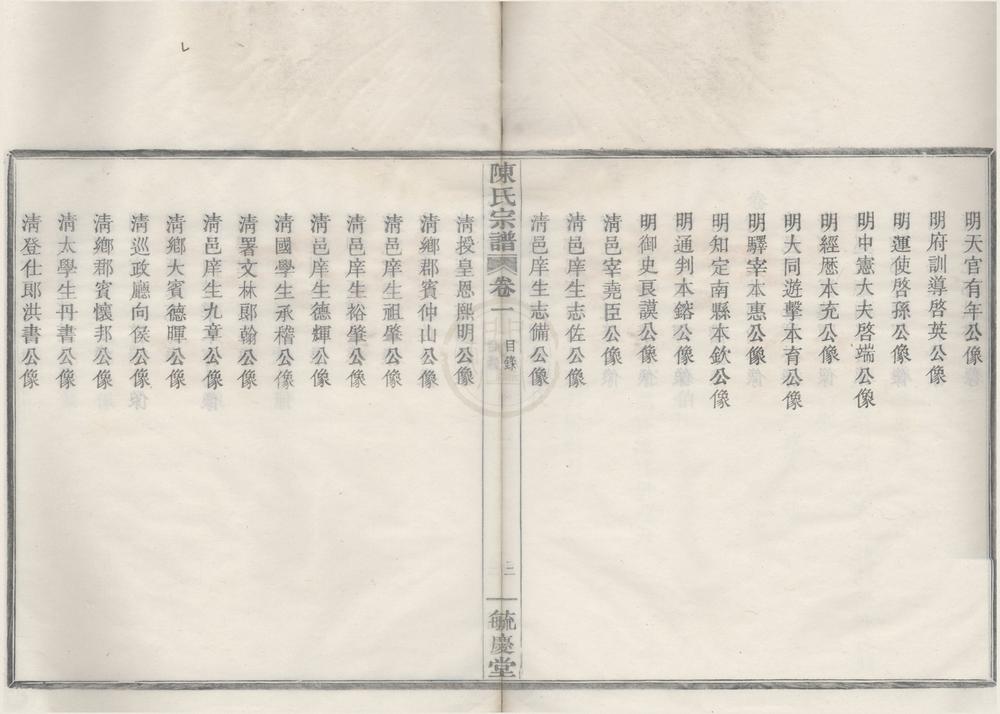 明天官有年公像
明府訓導啓英公像
明運使啓孫公像
明中憲大夫啓端公像
明經歷本充公像
明大同遊擊本育公像
明驛宰本惠公像
明知定南縣本欽公像
明通判本鎔公像
明御史長謨公像
清邑宰堯臣公像
清邑庠生志佐公像
清邑庠生志備公像
陳氏宗譜
卷一
目錄
三
毓慶堂
清授皇恩熙明公像
清鄉郡賓仲山公像
清邑庠生祖肇公像
清邑庠生裕肇公像
清邑庠生德輝公像
清國學生承稽公像
清署文林郎翰公像
清邑庠生九章公像
清鄉大賓德暉公像
清巡政廳向侯公像
清鄉郡賓懷邦公像
清太學生丹書公像
清登仕郎洪書公像